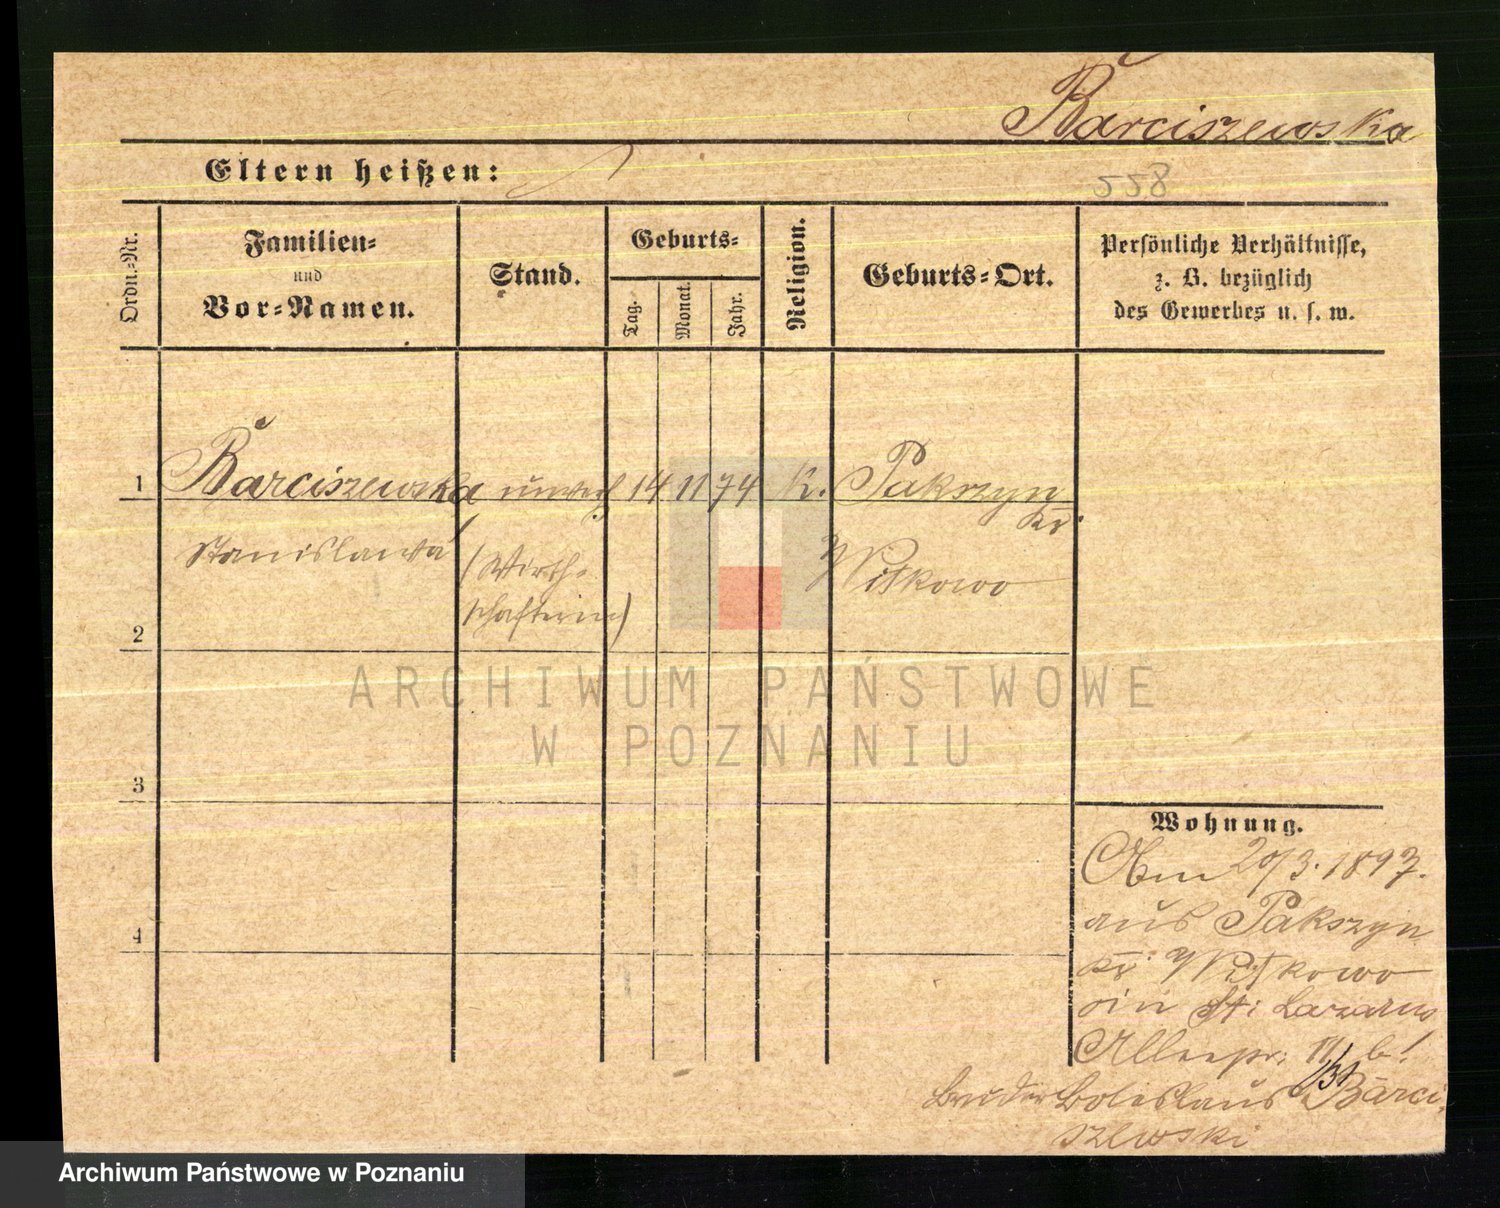 Barciszewska
Eltern heißen:
558
Ordn.-Nr.
Familien-
und
Vor-Namen.
Stand.
Geburts-
Tag.
Monat.
Jahr.
Religion.
Geburts-Ort.
Persönliche Verhältnisse,
z. B. bezüglich
des Gewerbes u. s. w.
1 Barciszewska unverh 14 11 74 k. Pakszyn
Kr.
Stanislawa (Wirth- Witkowo
schafterin)
2
ARCHIWUM PAŃSTWOWE
W POZNANIU
3
Wohnung.
Am 20/3. 1897.
aus Pakszyn
Kr. Witkowo
in St. Lazarus
4
Bruder Boleslaus Barci
szewski
Archiwum Państwowe w Poznaniu